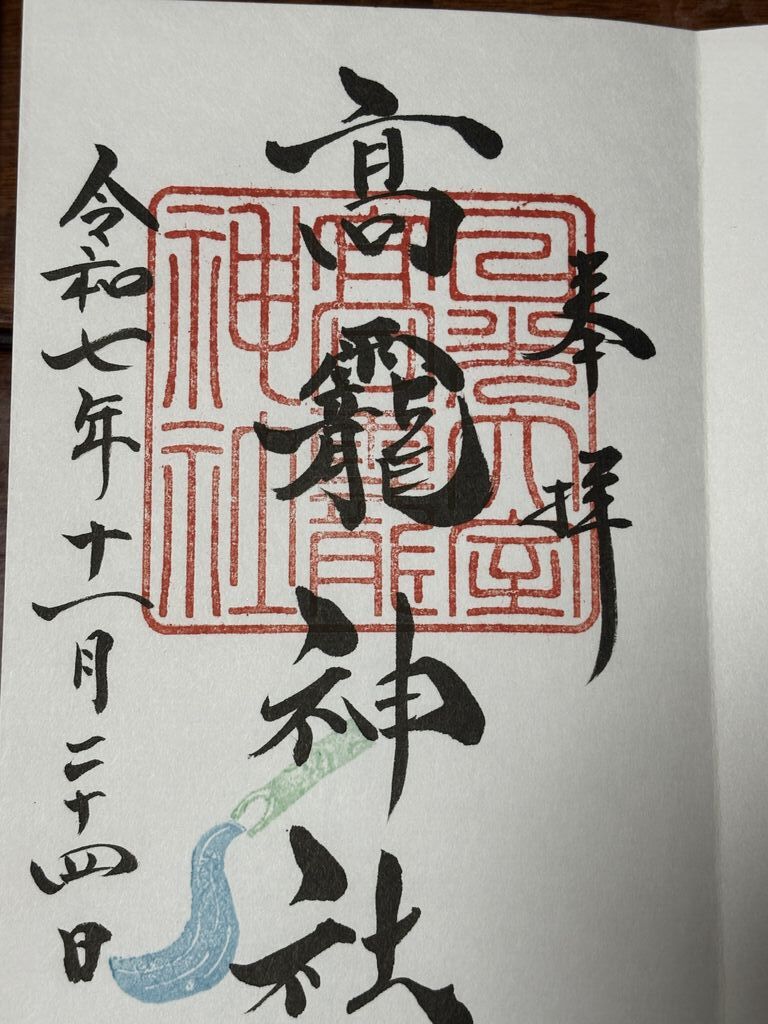 奉拝
髙龗神社
令和七年十一月二十四日
日光大室
高龗
神社